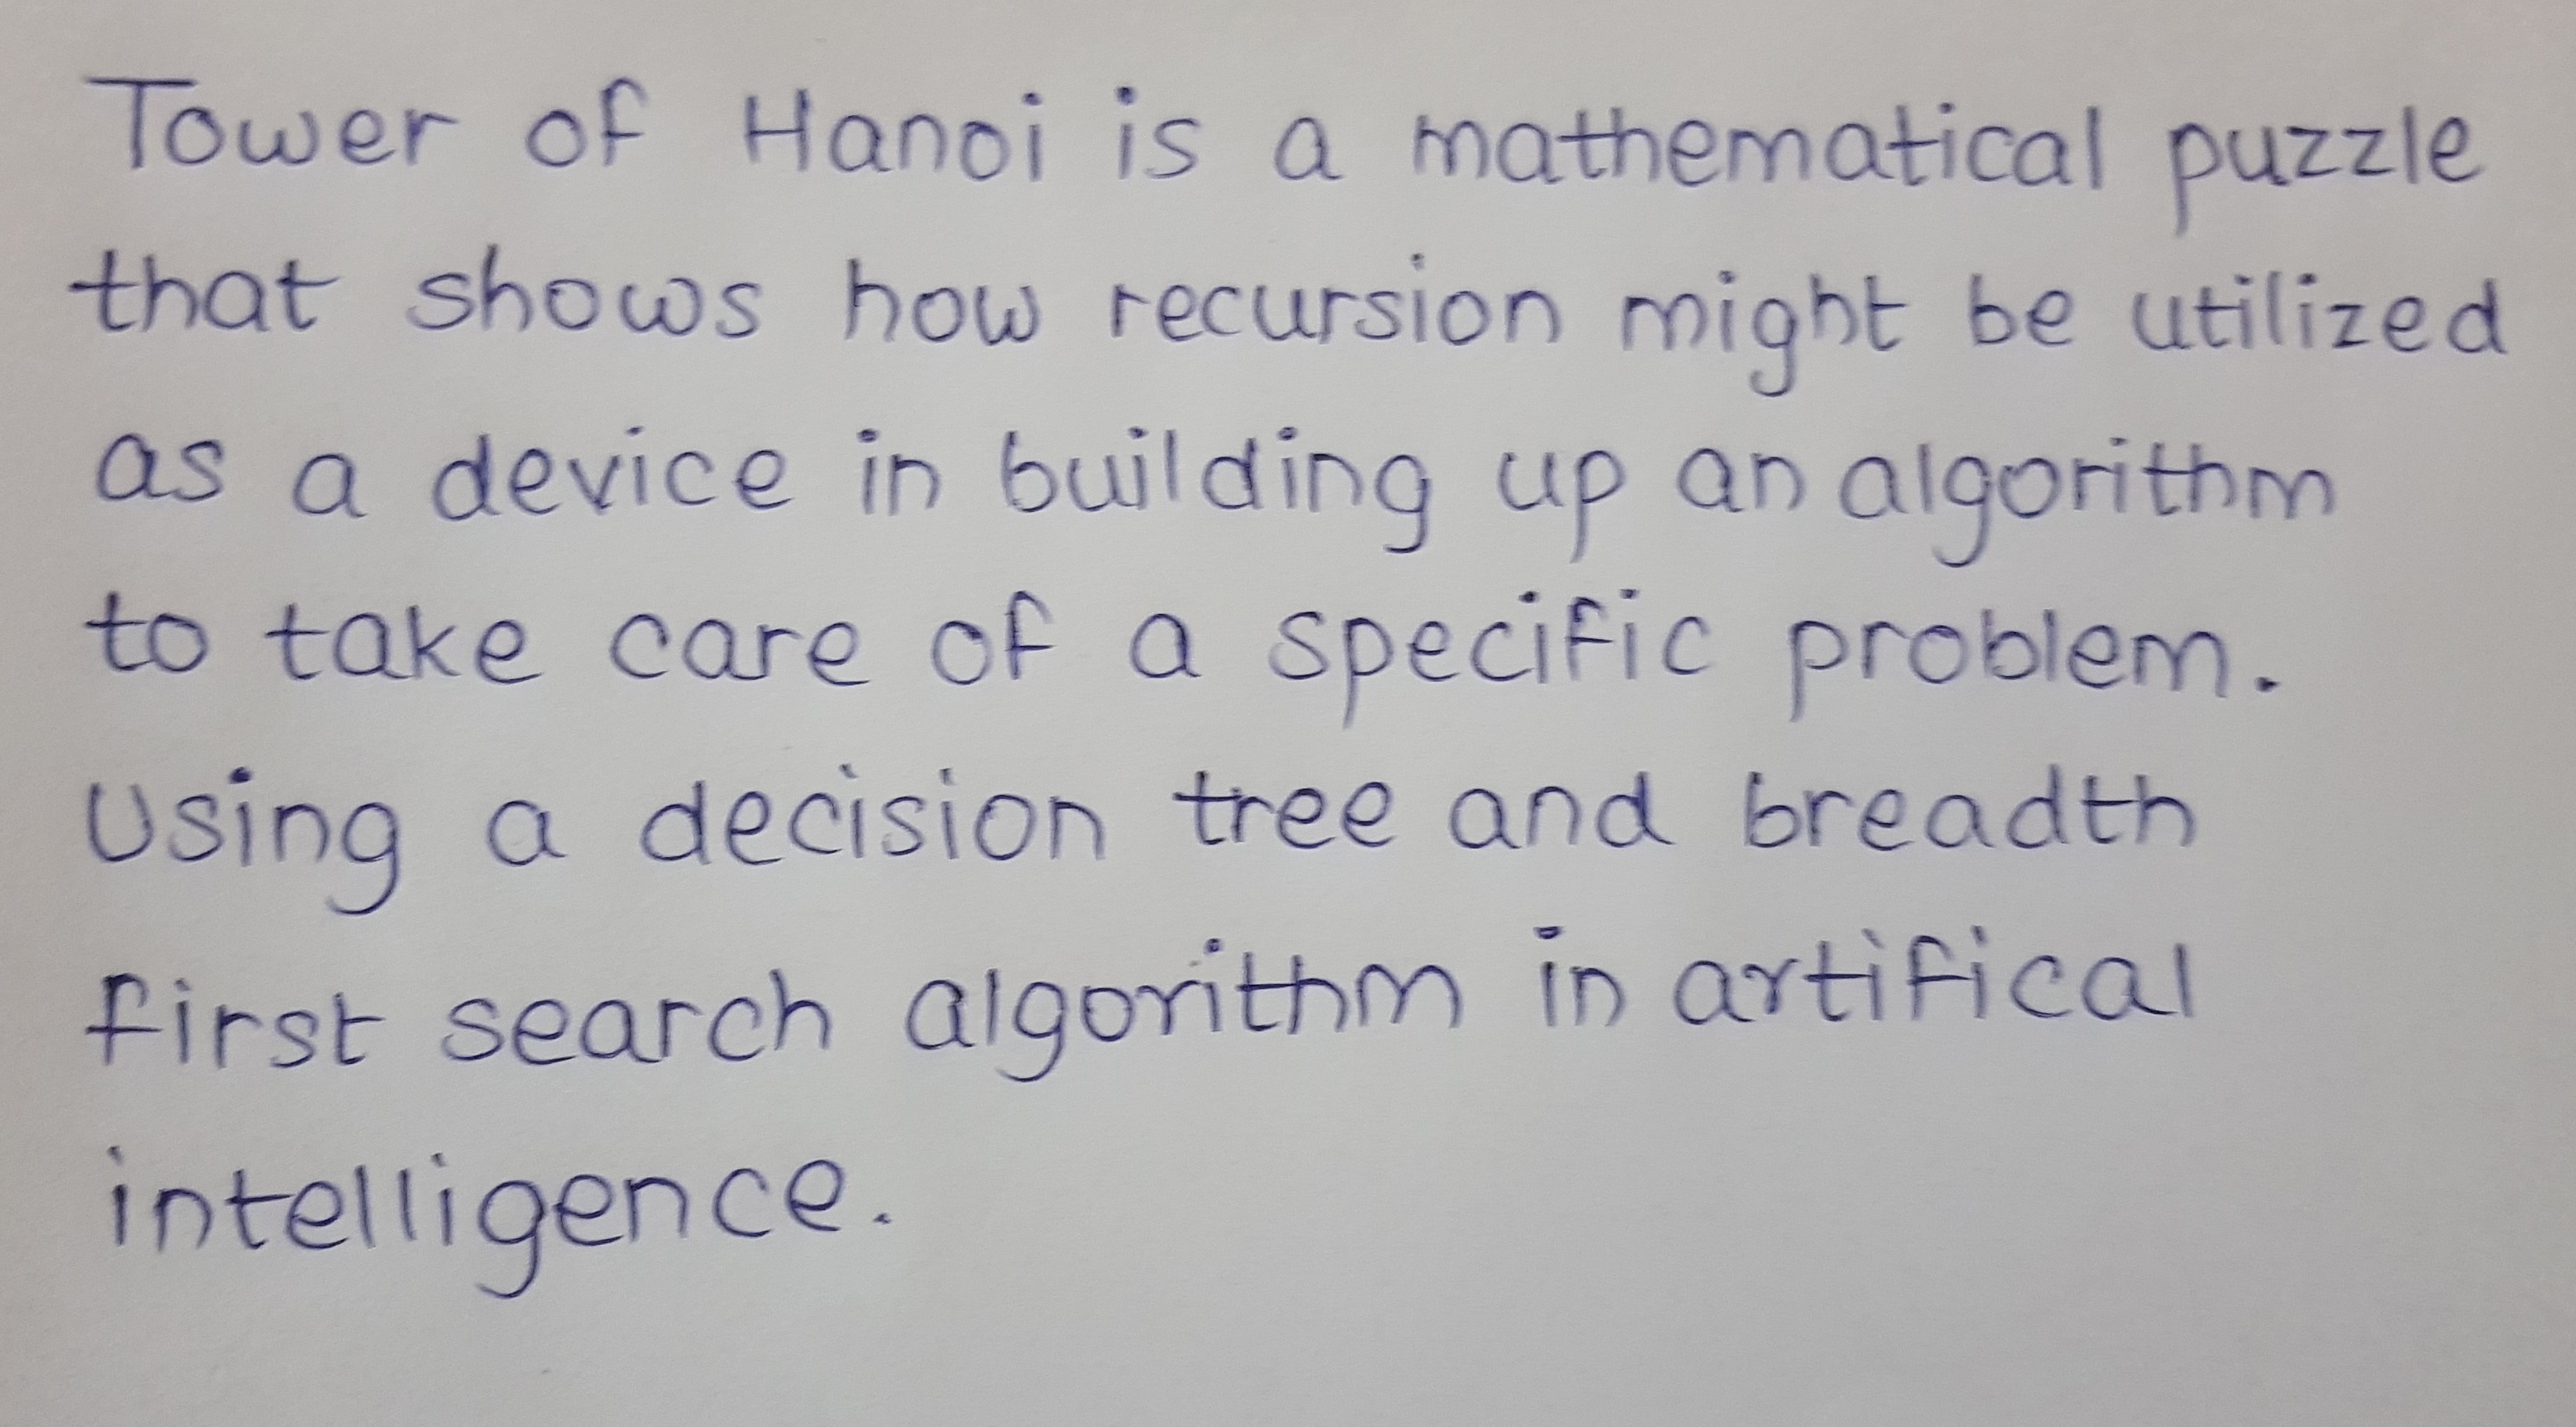 Tower of Hanoi is a mathematical puzzle
that shows how recursion might be utilized
as a device in building up an algorithm
to take care of a specific problem.
Using a decision tree and breadth
first search algorithm in artifical
intelligence.